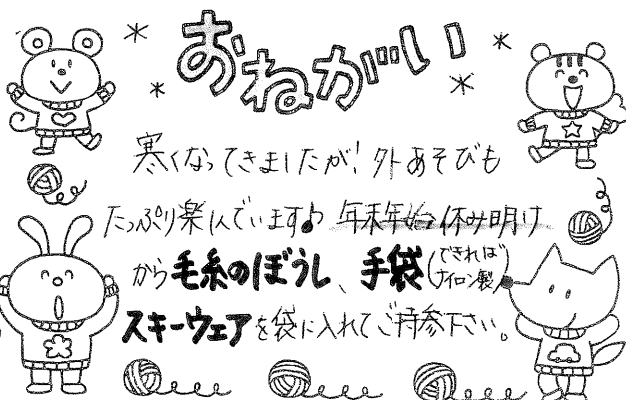 おねがい
寒くなってきましたが、外あそびも
たっぷり楽しんでいます♪ 年末年始休み明け
から毛糸のぼうし、手袋(できればナイロン製)
スキーウェアを袋に入れてご持参下さい。